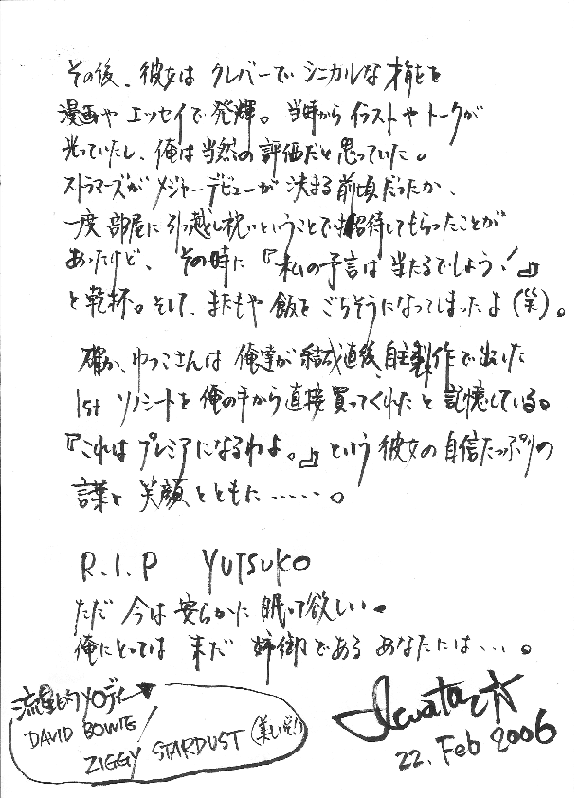 その後、彼女は クレバーで シニカルな 才能を
漫画や エッセイで 発揮。 当時から イラストや トークが
光っていたし、俺は 当然の 評価だと 思っていた。
ストラマーズが メジャーデビューが 決まる 前頃だったか、
一度 部屋に 引っ越し祝いということで 招待してもらったことが
あったけど、 その時に 『私の予言は 当たるでしょう!』
と乾杯。そして、またもや 飯を ごちそうになってしまったよ(笑)。
確か、ゆつこさんは 俺達が 結成直後、自主製作で出した
1st ソノシートを 俺の手から 直接 買ってくれたと 記憶している。
『これは プレミアになるわよ。』という 彼女の 自信たっぷりの
言葉と 笑顔とともに……。
R.I.P YUTSUKO
ただ 今は 安らかに 眠って欲しい。
俺にとっては 未だ 姉御である あなたには…。
流星的メロディー★
DAVID BOWIE/
ZIGGY STARDUST
22. Feb 2006